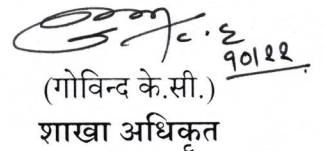 १०।२२
(गोविन्द के.सी.)
शाखा अधिकृत